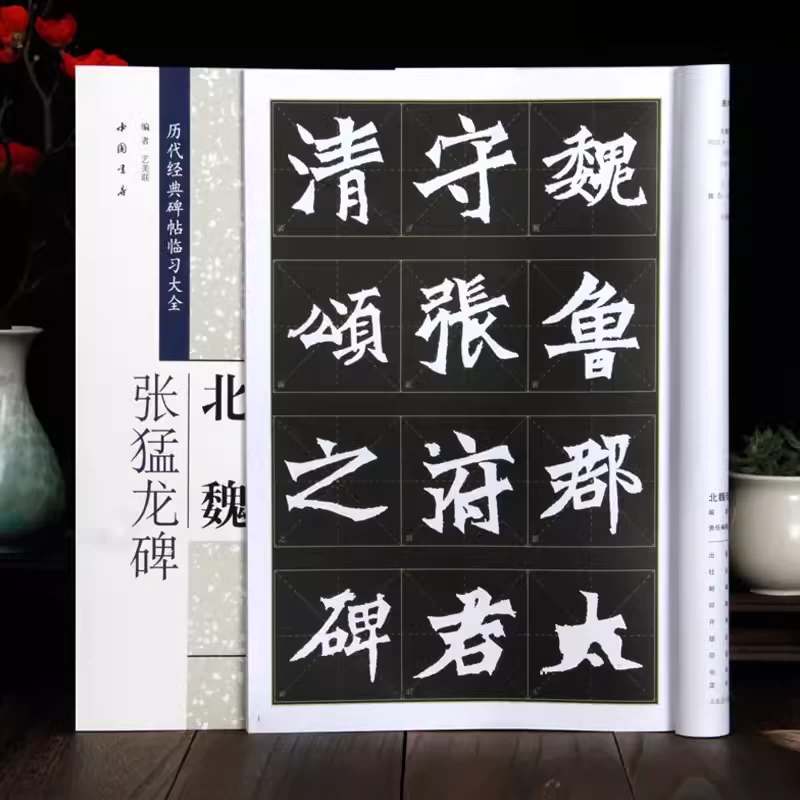 历代经典碑帖临习大全
编者 艺美联
中国书店
北魏
张猛龙碑
魏鲁郡太
守張府君
清頌之碑
北魏